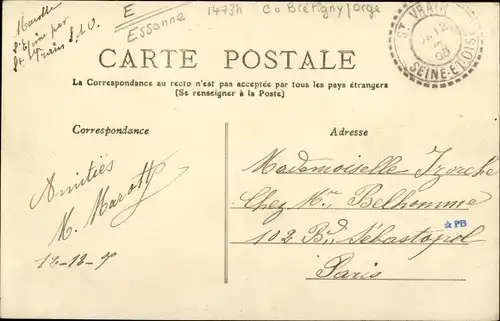 E
Essonne
14734
Co Brétigny/orge
St Vrain S.&O.
ST VRAIN
12
SEINE-ET-OISE
CARTE POSTALE
La Correspondance au recto n'est pas acceptée par tous les pays étrangers
(Se renseigner à la Poste)
Correspondance
Adresse
Amitiés
M. Marott
Mademoiselle
Chez Mr. Belhomme
102 Bd. Sébastopol
Paris
PB